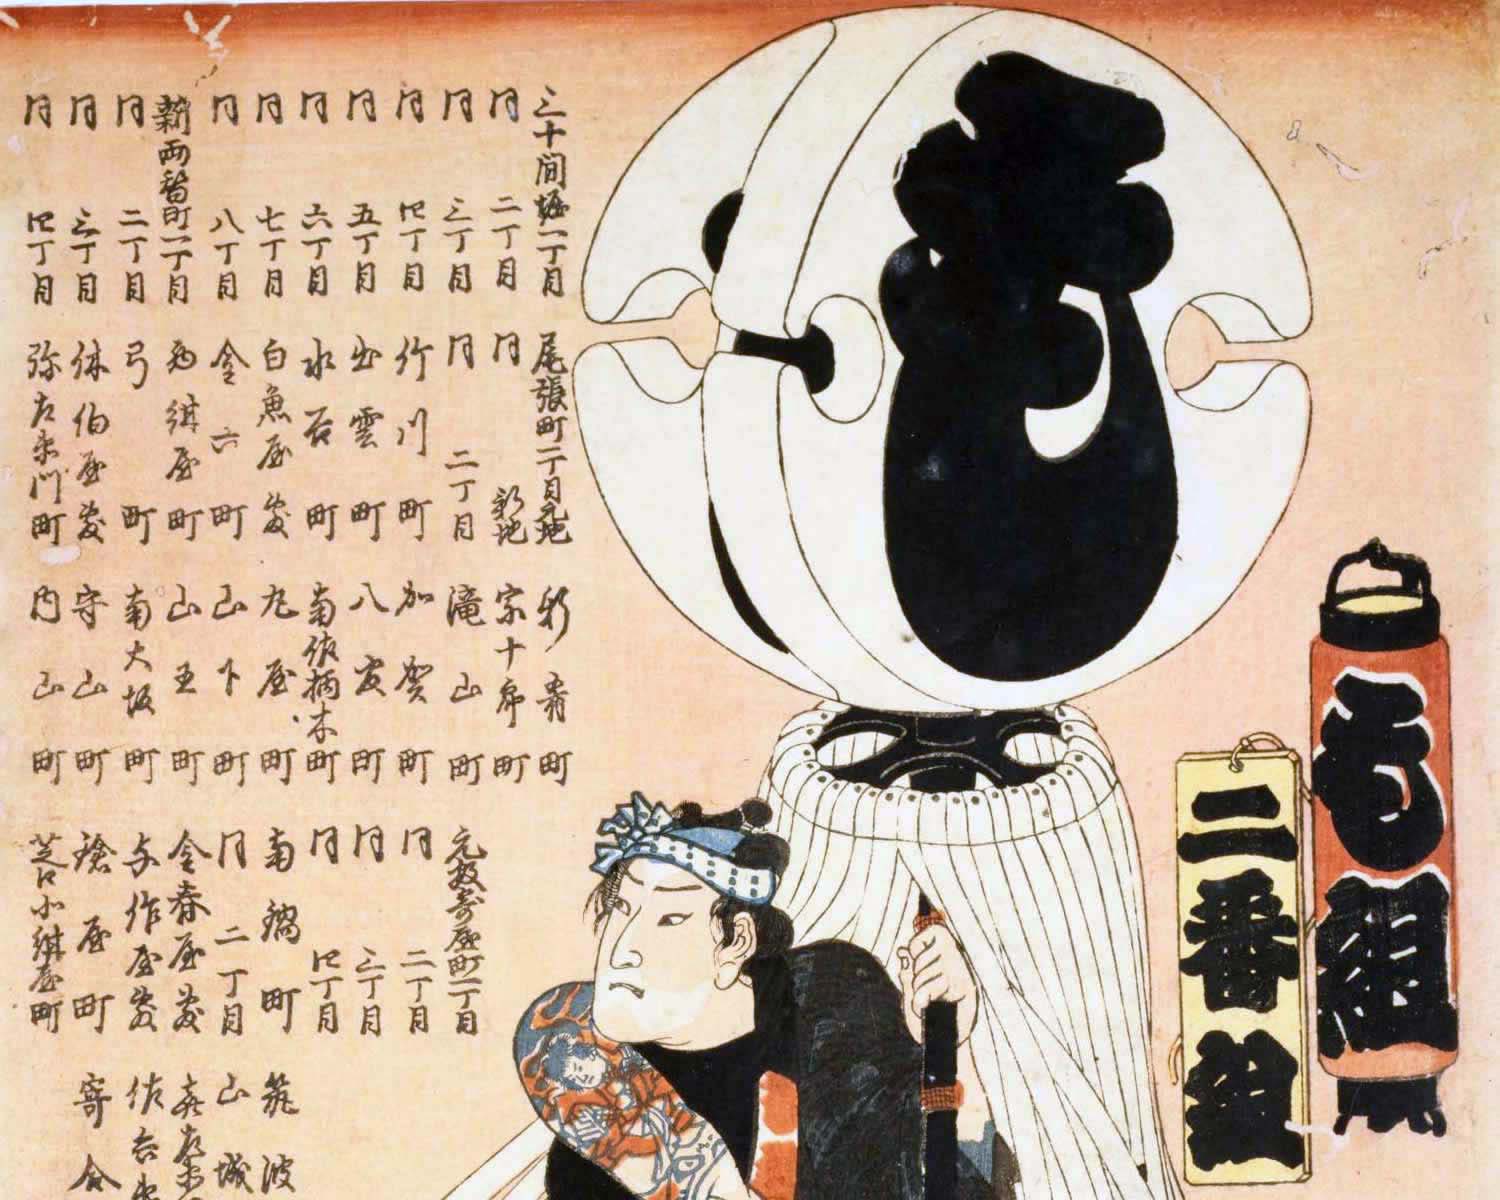 も組
二番組
三十間堀一丁目
同 二丁目
同 三丁目
同 四丁目
同 五丁目
同 六丁目
同 七丁目
同 八丁目
新両替町一丁目
同 二丁目
同 三丁目
同 四丁目
尾張町一丁目元地
同 新地
同 二丁目
竹川町
出雲町
水谷町
白魚屋敷
金六町
西紺屋町
弓町
休伯屋敷
弥左衛門町
新肴町
宗十郎町
滝山町
加賀町
八官町
南佐柄木町
丸屋町
山下町
山王町
南大坂町
守山町
内山町
元数寄屋町一丁目
同 二丁目
同 三丁目
同 四丁目
南鍋町
同 二丁目
金春屋敷
与作屋敷
鎗屋町
芝口小紺屋町
筑波
山城
寄合